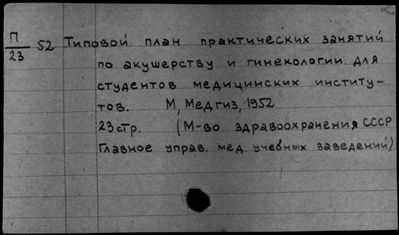 П/23 52 Типовой план практических занятий
по акушерству и гинекологии для
студентов медицинских институ-
тов. М, Медгиз, 1952
23 стр. (М-во здравоохранения СССР
Главное управ. мед. учебных заведений)